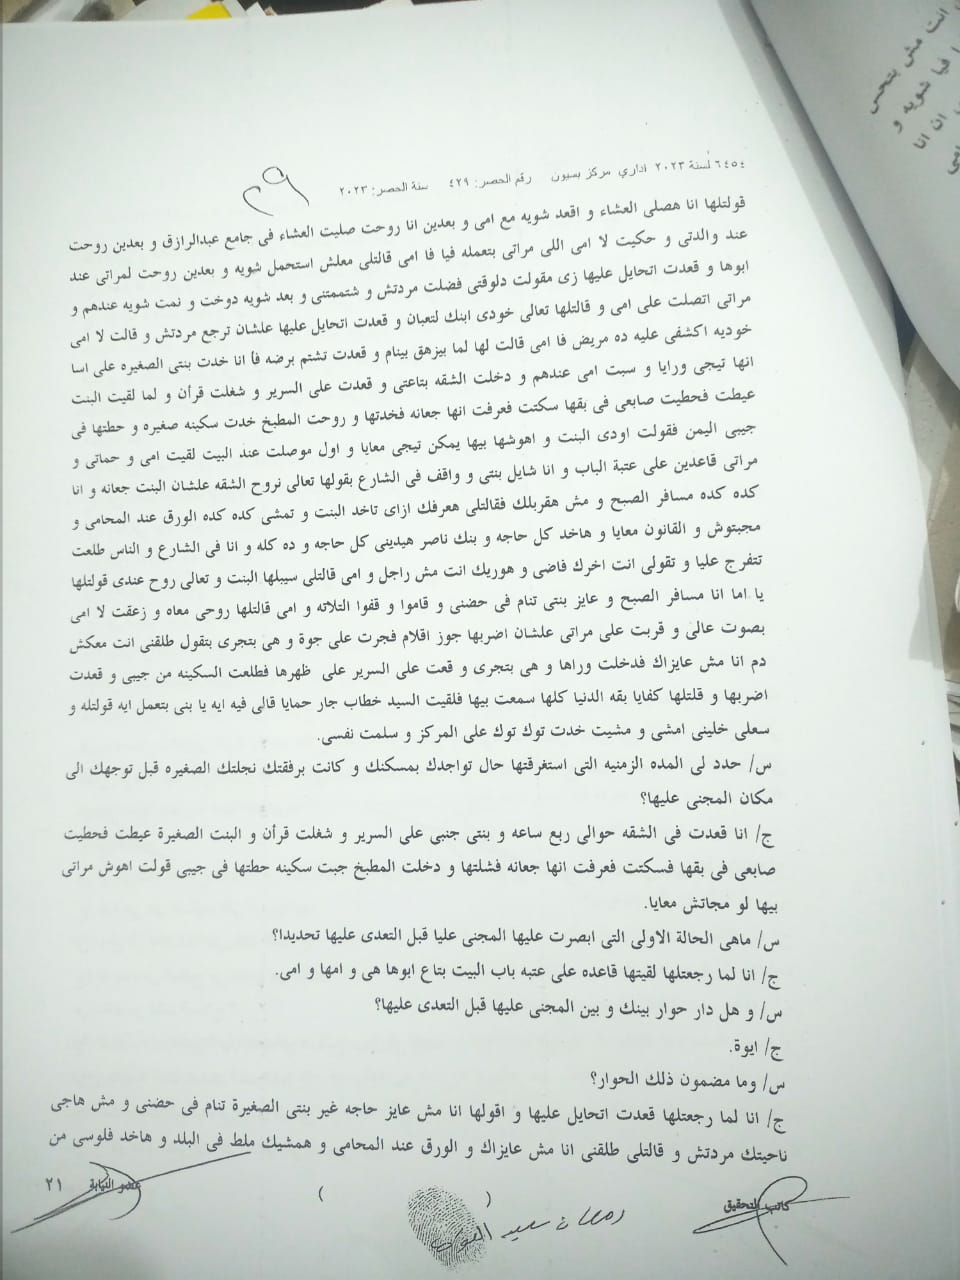 ٦٤٥٤ لسنة ٢٠٢٣ اداري مركز بسيون رقم الحصر: ٤٢٩ سنة الحصر: ٢٠٢٣
قولتلها انا هصلى العشاء و اقعد شويه مع امى و بعدين انا روحت صليت العشاء فى جامع عبدالرازق و بعدين روحت
عند والدتى و حكيت لا امى اللى مراتى بتعمله فيا فا امى قالتلى معلش استحمل شويه و بعدين روحت لمراتى عند
ابوها و قعدت اتحايل عليها زى مقولت دلوقتى فضلت مردتش و شتممتنى و بعد شويه دوخت و نمت شويه عندهم و
مراتى اتصلت على امى و قالتلها تعالى خودى ابنك لتعبان و قعدت اتحايل عليها علشان ترجع مردتش و قالت لا امى
خوديه اكشفى عليه ده مريض فا امى قالت لها لما بيزهق بينام و قعدت تشتم برضه فأ انا خدت بنتى الصغيره على اسا
انها تيجى ورايا و سبت امى عندهم و دخلت الشقه بتاعتى و قعدت على السرير و شغلت قرأن و لما لقيت البنت
عيطت فحطيت صابعى فى بقها سكتت فعرفت انها جعانه فخدتها و روحت المطبخ خدت سكينه صغيره و حطتها فى
جيبى اليمن فقولت اودى البنت و اهوشها بيها يمكن تيجى معايا و اول موصلت عند البيت لقيت امى و حماتى و
مراتى قاعدين على عتبة الباب و انا شايل بنتى و واقف فى الشارع بقولها تعالى نروح الشقه علشان البنت جعانه و انا
كده كده مسافر الصبح و مش هقربلك فقالتلى هعرفك ازاى تاخد البنت و تمشى كده كده الورق عند المحامى و
مجبتوش و القانون معايا و هاخد كل حاجه و بنك ناصر هيدينى كل حاجه و ده كله و انا فى الشارع و الناس طلعت
تتفرج عليا و تقولى انت اخرك فاضى و هوريك انت مش راجل و امى قالتلى سيبلها البنت و تعالى روح عندى قولتلها
يا اما انا مسافر الصبح و عايز بنتى تنام فى حضنى و قاموا و قفوا التلاته و امى قالتلها روحى معاه و زعقت لا امى
بصوت عالى و قربت على مراتى علشان اضربها جوز اقلام فجرت على جوة و هى بتجرى بتقول طلقنى انت معكش
دم انا مش عايزاك فدخلت وراها و هى بتجرى و قعت على السرير على ظهرها فطلعت السكينه من جيبى و قعدت
اضربها و قلتلها كفايا بقه الدنيا كلها سمعت بيها فلقيت السيد خطاب جار حمايا قالى فيه ايه يا بنى بتعمل ايه قولتله و
سعلى خلينى امشى و مشيت خدت توك توك على المركز و سلمت نفسى.
س/ حدد لى المده الزمنيه التى استغرقتها حال تواجدك بمسكنك و كانت برفقتك نجلتك الصغيره قبل توجهك الى
مكان المجنى عليها؟
ج/ انا قعدت فى الشقه حوالى ربع ساعه و بنتى جنبى على السرير و شغلت قرأن و البنت الصغيرة عيطت فحطيت
صابعى فى بقها فسكتت فعرفت انها جعانه فشلتها و دخلت المطبخ جبت سكينه حطتها فى جيبى قولت اهوش مراتى
بيها لو مجاتش معايا.
س/ ماهى الحالة الاولى التى ابصرت عليها المجنى عليا قبل التعدى عليها تحديدا؟
ج/ انا لما رجعتلها لقيتها قاعده على عتبه باب البيت بتاع ابوها هى و امها و امى.
س/ و هل دار حوار بينك و بين المجنى عليها قبل التعدى عليها؟
ج/ ايوة.
س/ وما مضمون ذلك الحوار؟
ج/ انا لما رجعتلها قعدت اتحايل عليها و اقولها انا مش عايز حاجه غير بنتى الصغيرة تنام فى حضنى و مش هاجى
ناحيتك مردتش و قالتلى طلقنى انا مش عايزاك و الورق عند المحامى و همشيك ملط فى البلد و هاخد فلوسى من
كاتب التحقيق ( ) عضو النيابة ٢١
رمضان سعيد